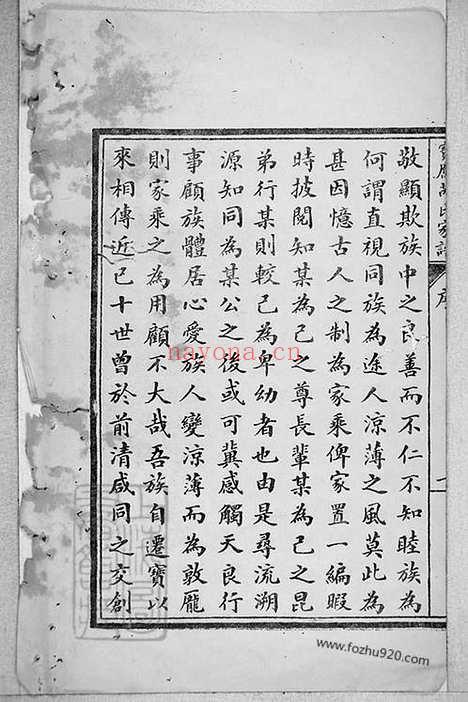 敬顯欺族中之良善而不仁不知睦族為
何謂直視同族為途人涼薄之風莫此為
甚因憶古人之制為家乘俾家置一編暇
時披閱知某為己之尊長輩某為己之昆
弟行某則較己為卑幼者也由是尋流溯
源知同為某公之後或可冀感觸天良行
事顧族體居心愛族人變涼薄而為敦龐
則家乘之為用顧不大哉吾族自遷寶以
來相傳近已十世曾於前清咸同之交創
navona.cn
www.fozhu920.com